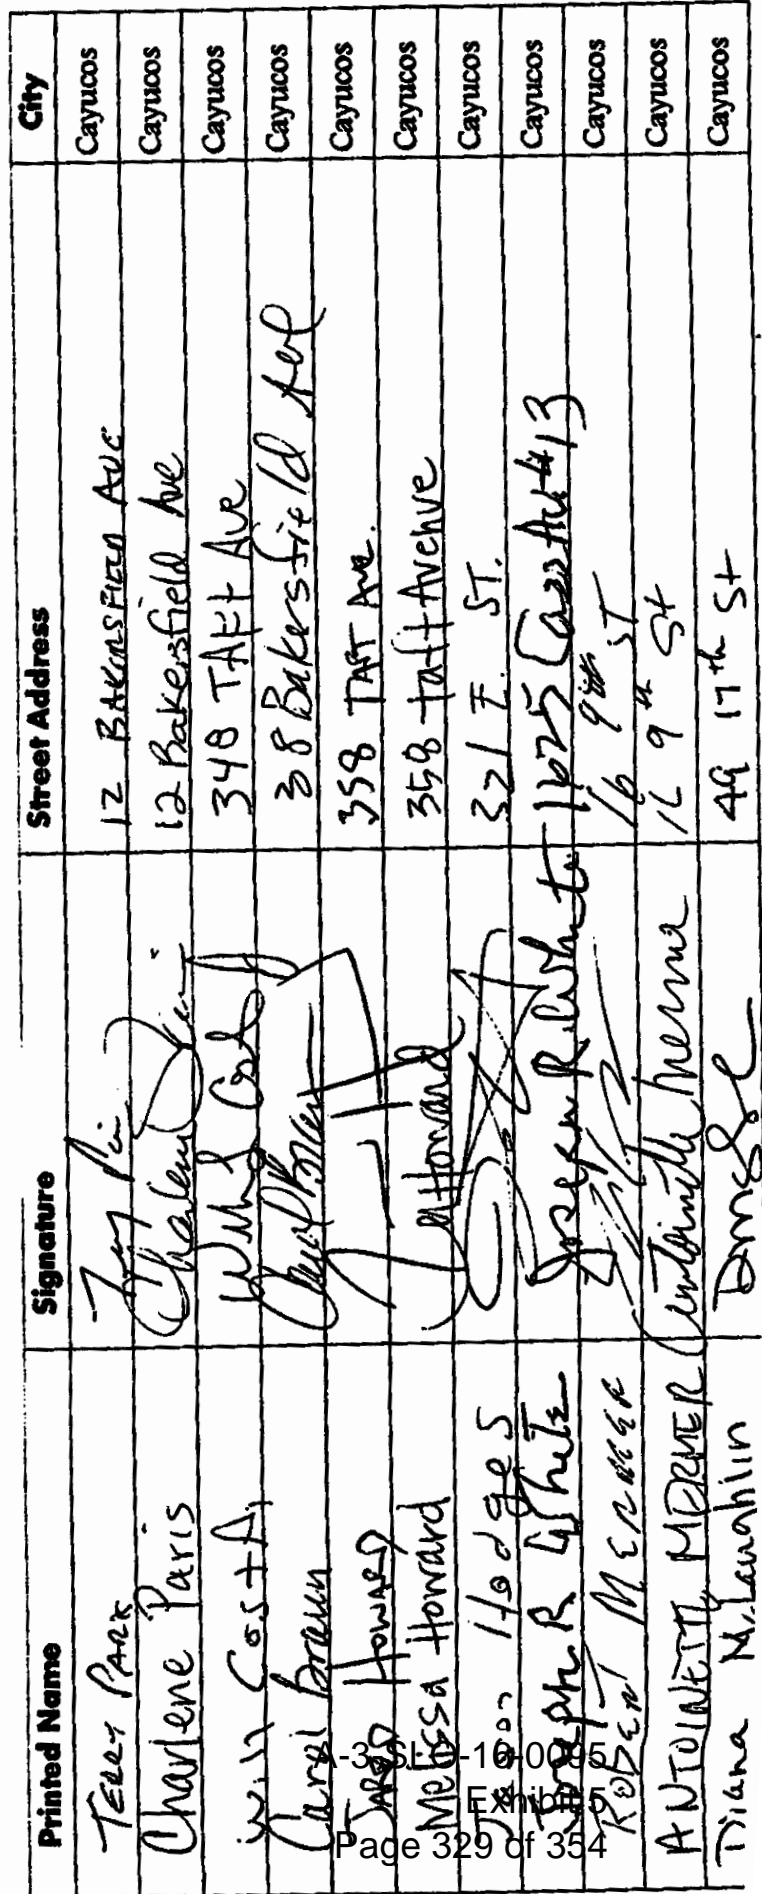 Printed Name Signature Street Address City
TERRY PARK 12 BAKERSFIELD AVE Cayucos
Charlene Paris Charlene 12 Bakersfield Ave Cayucos
Will Costa 348 TAFt Ave Cayucos
Carol Braun Carol 38 Bakersfield Ave Cayucos
JARED HOWARD 358 TAFT Ave. Cayucos
Melissa Howard Howard 358 taft Avenue Cayucos
Hodges 321 E. ST. Cayucos
Joseph R White Joseph R. White 1625 Cass Av #13 Cayucos
ROBERT MERNER 16 9th ST Cayucos
ANTOINETTE MERNER Antoinette Merner 16 9th St Cayucos
Diana McLaughlin 49 17th St Cayucos
A-3-SLO-16-0095
Exhibit 5
Page 329 of 354